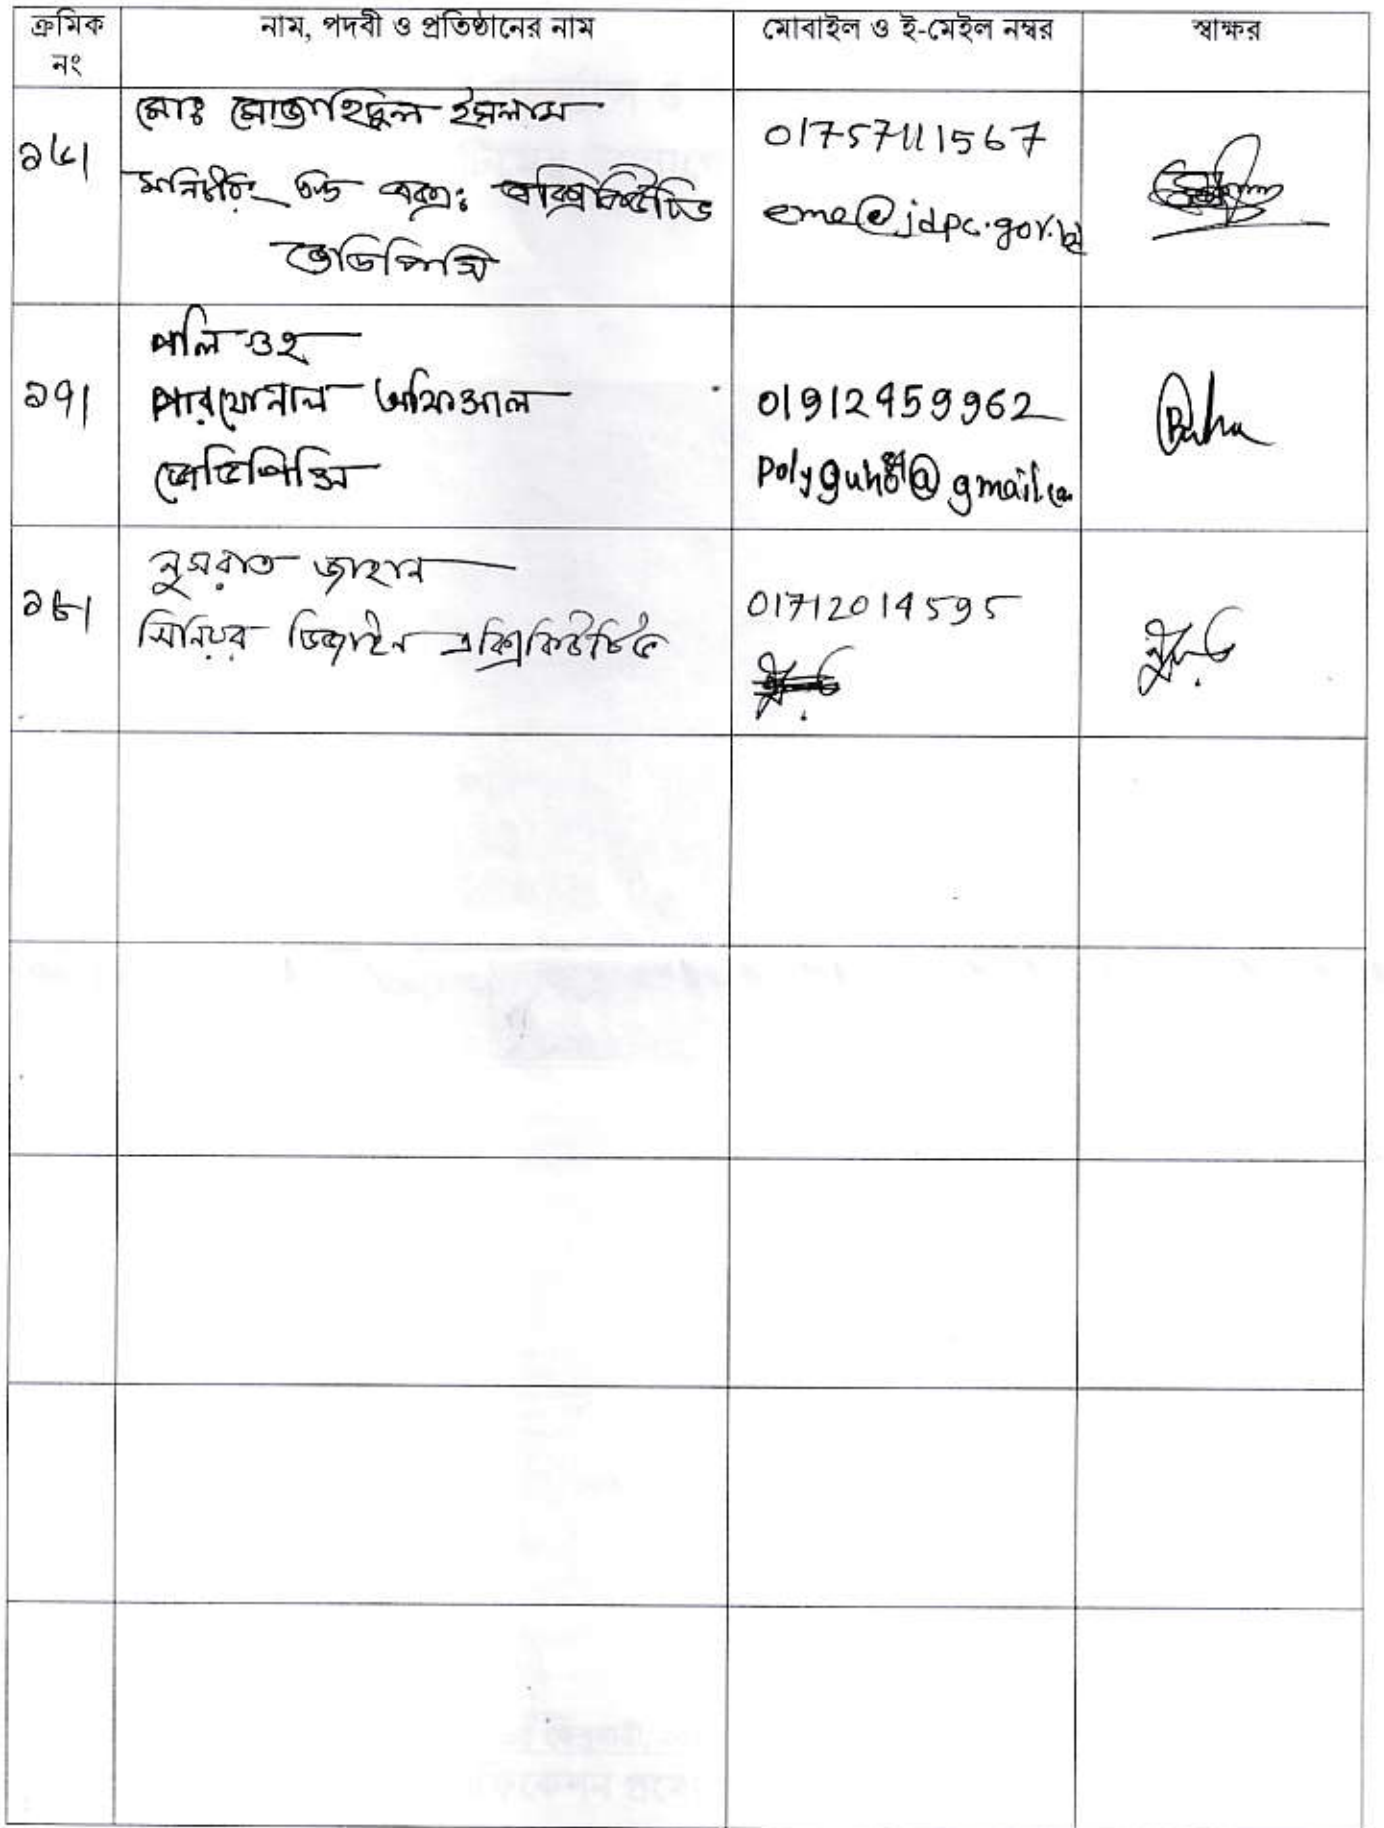 ক্রমিক নং	নাম, পদবী ও প্রতিষ্ঠানের নাম	মোবাইল ও ই-মেইল নম্বর	স্বাক্ষর
১৬।
মোঃ মোজাহিদুল ইসলাম
মনিটরিং এন্ড এক্সঃ এক্সিকিউটিভ
জেডিপিসি
01757111567
eme@jdpc.gov.bd
১৭।
পলি গুহ
পারসোনাল অফিসার
জেডিপিসি
01912459962
polyguha84@gmail.com
১৮।
নুসরাত জাহান
সিনিয়র ডিজাইন এক্সিকিউটিভ
01712014595